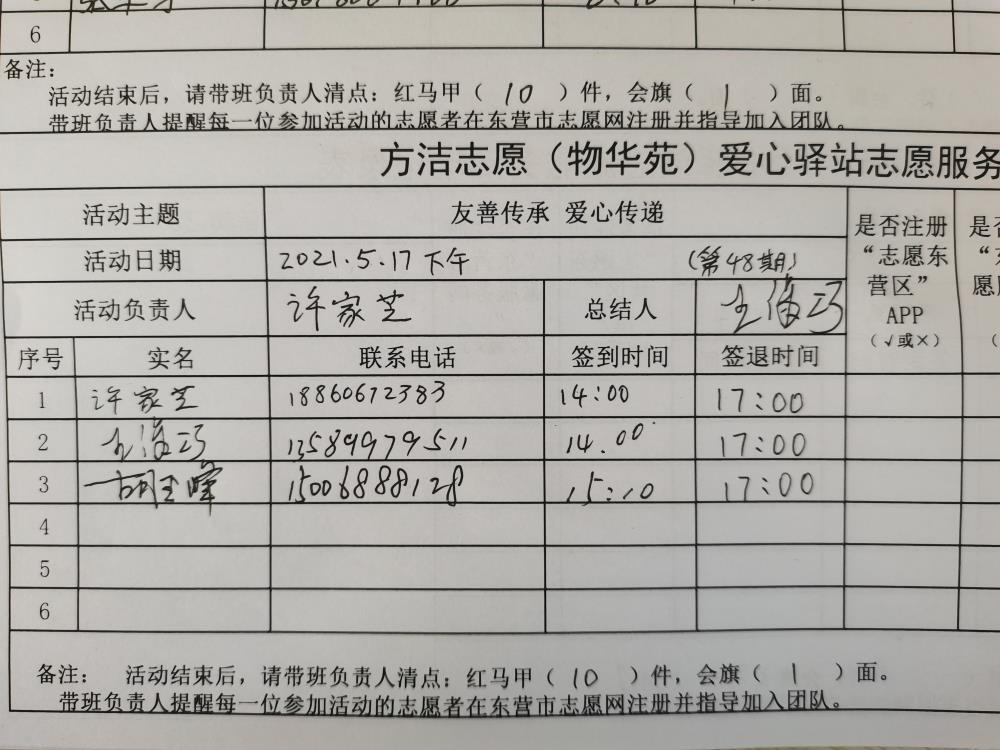 6
备注：
活动结束后，请带班负责人清点：红马甲（ 10 ）件，会旗（ 1 ）面。
带班负责人提醒每一位参加活动的志愿者在东营市志愿网注册并指导加入团队。
方洁志愿（物华苑）爱心驿站志愿服务
活动主题 友善传承 爱心传递 是否注册“志愿东营区”APP（√或×） 是否
活动日期 2021.5.17 下午 （第48期）
活动负责人 许家芝 总结人
序号 实名 联系电话 签到时间 签退时间
1 许家芝 18860672383 14:00 17:00
2 13589979511 14.00 17:00
3 胡玉峰 15006888128 15:10 17:00
4
5
6
备注： 活动结束后，请带班负责人清点：红马甲（ 10 ）件，会旗（ 1 ）面。
带班负责人提醒每一位参加活动的志愿者在东营市志愿网注册并指导加入团队。